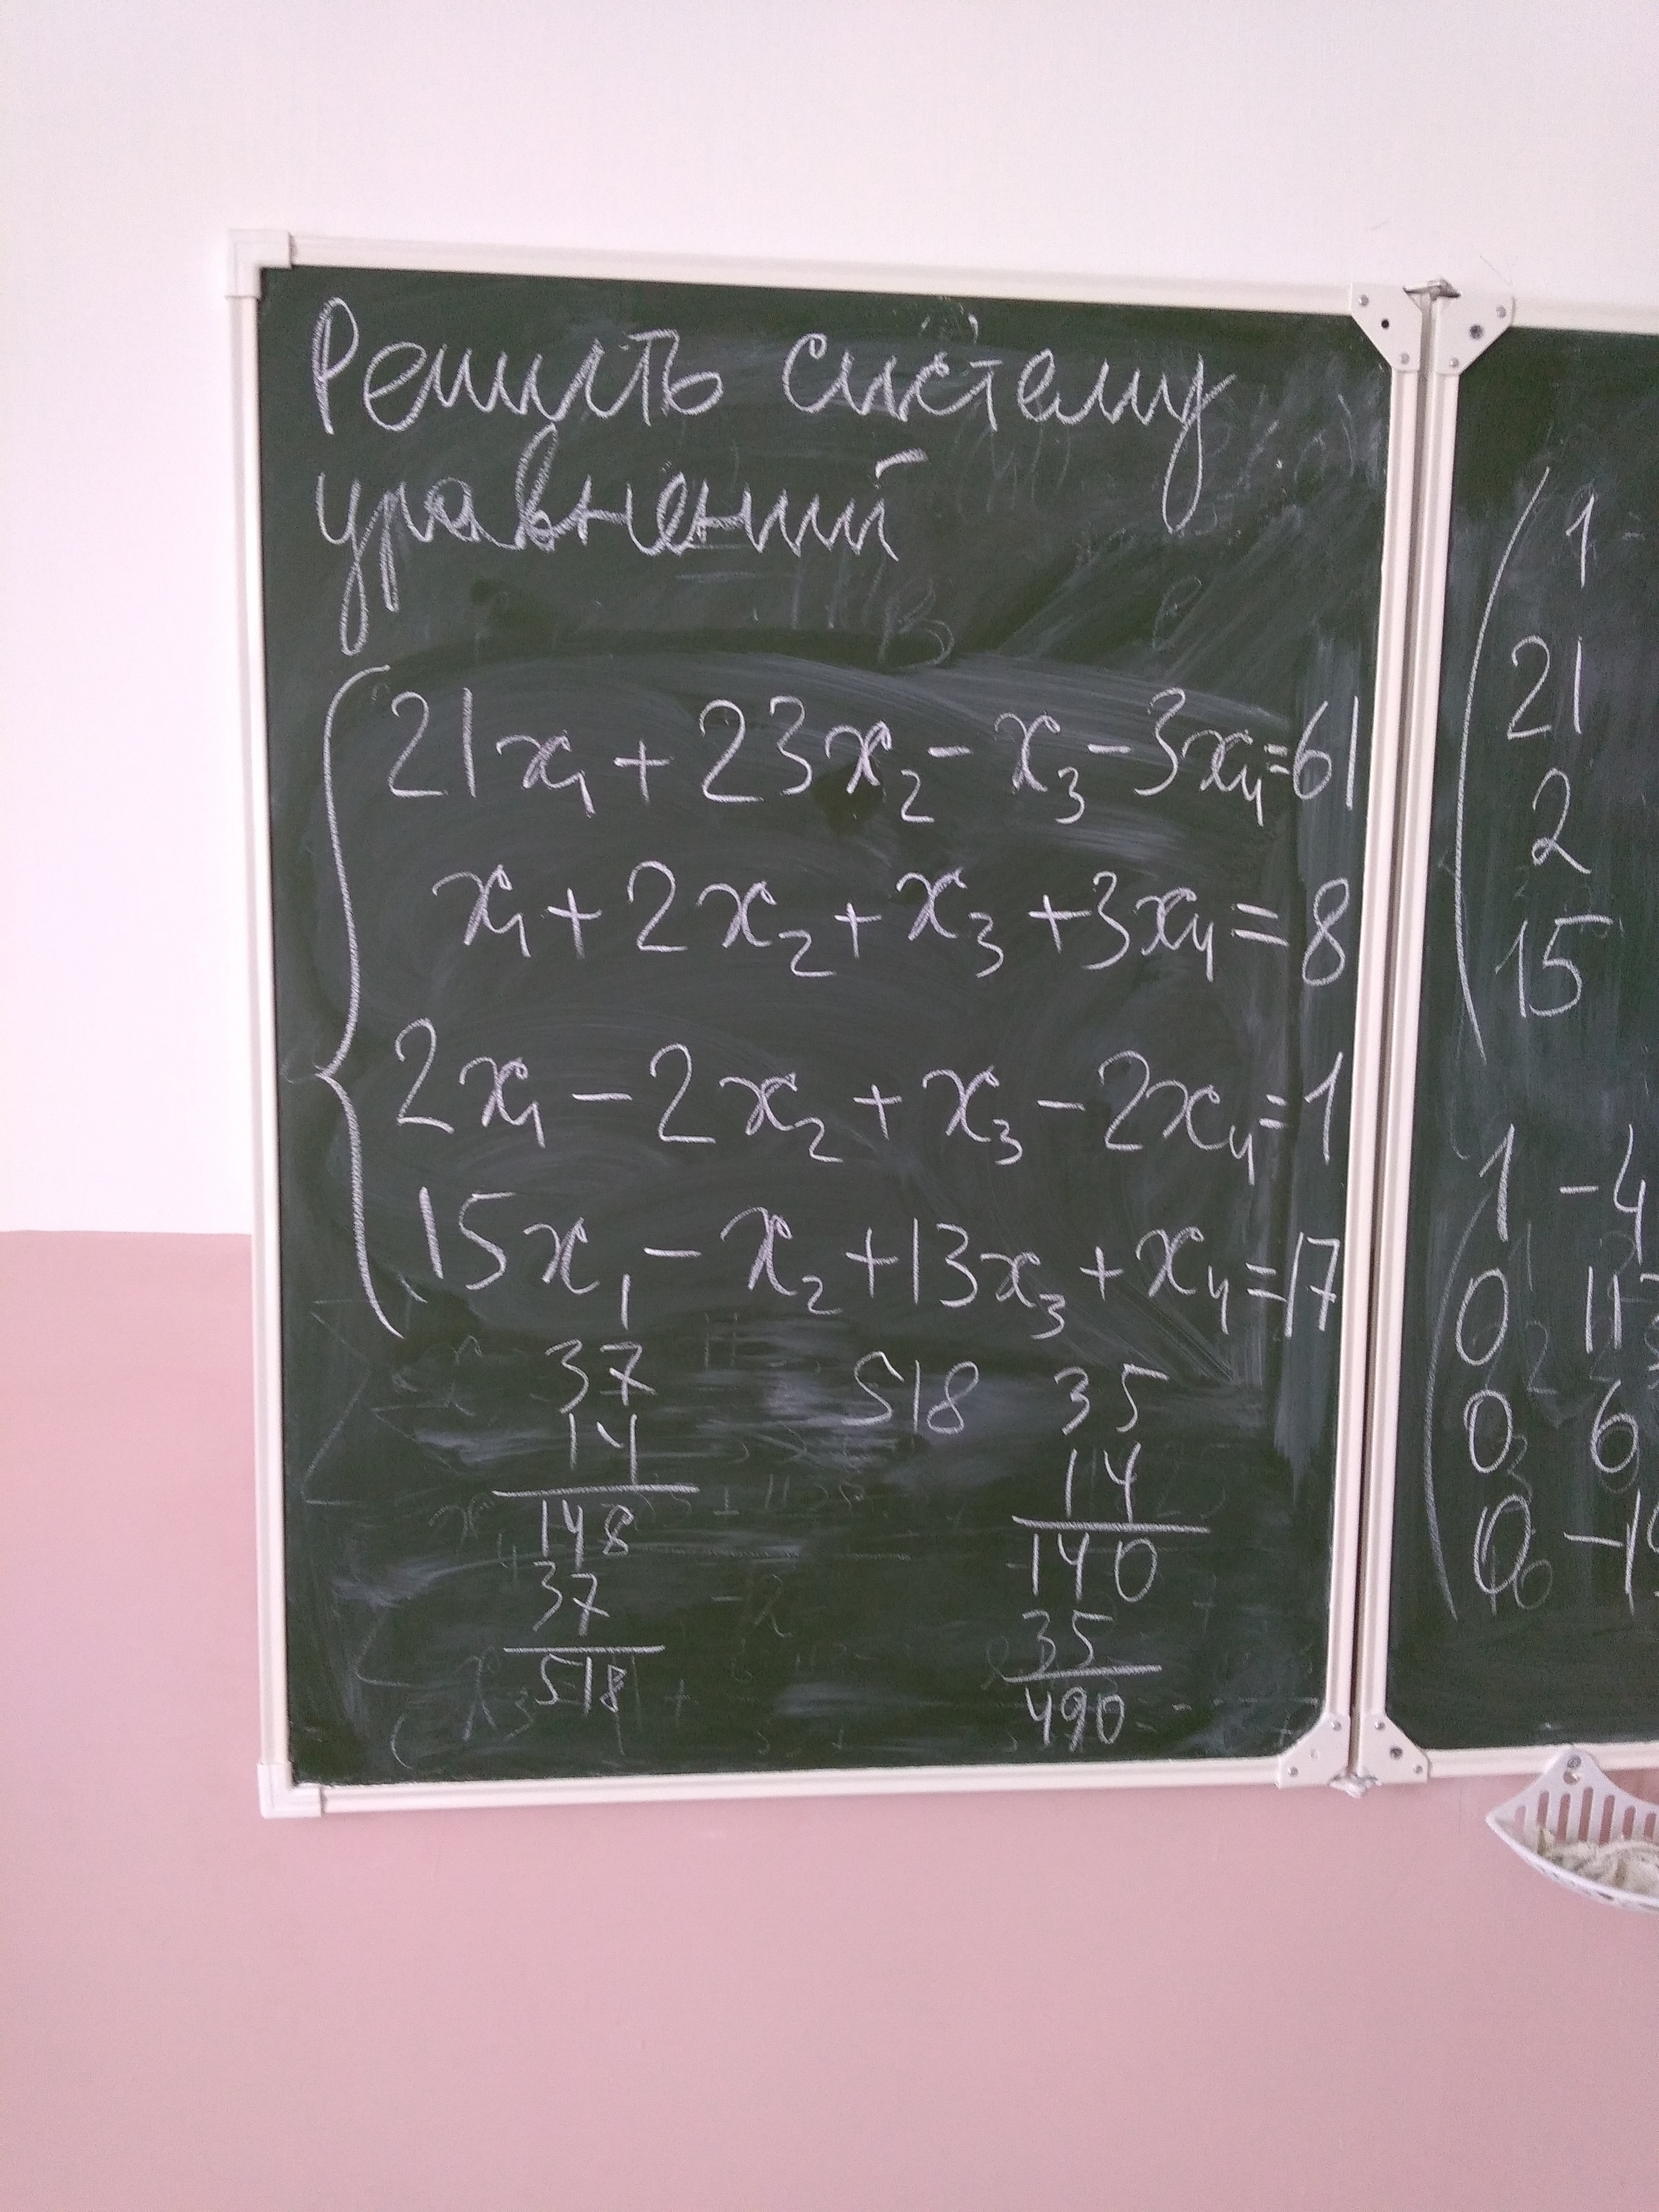 Решить систему
уравнений
21x₁ + 23x₂ - x₃ - 3x₄ = 61
x₁ + 2x₂ + x₃ + 3x₄ = 8
2x₁ - 2x₂ + x₃ - 2x₄ = 1
15x₁ - x₂ + 13x₃ + x₄ = 17
37
14
148
37
518
518
35
14
140
35
490
1
21
2
15
1 -4
0
0 6
0